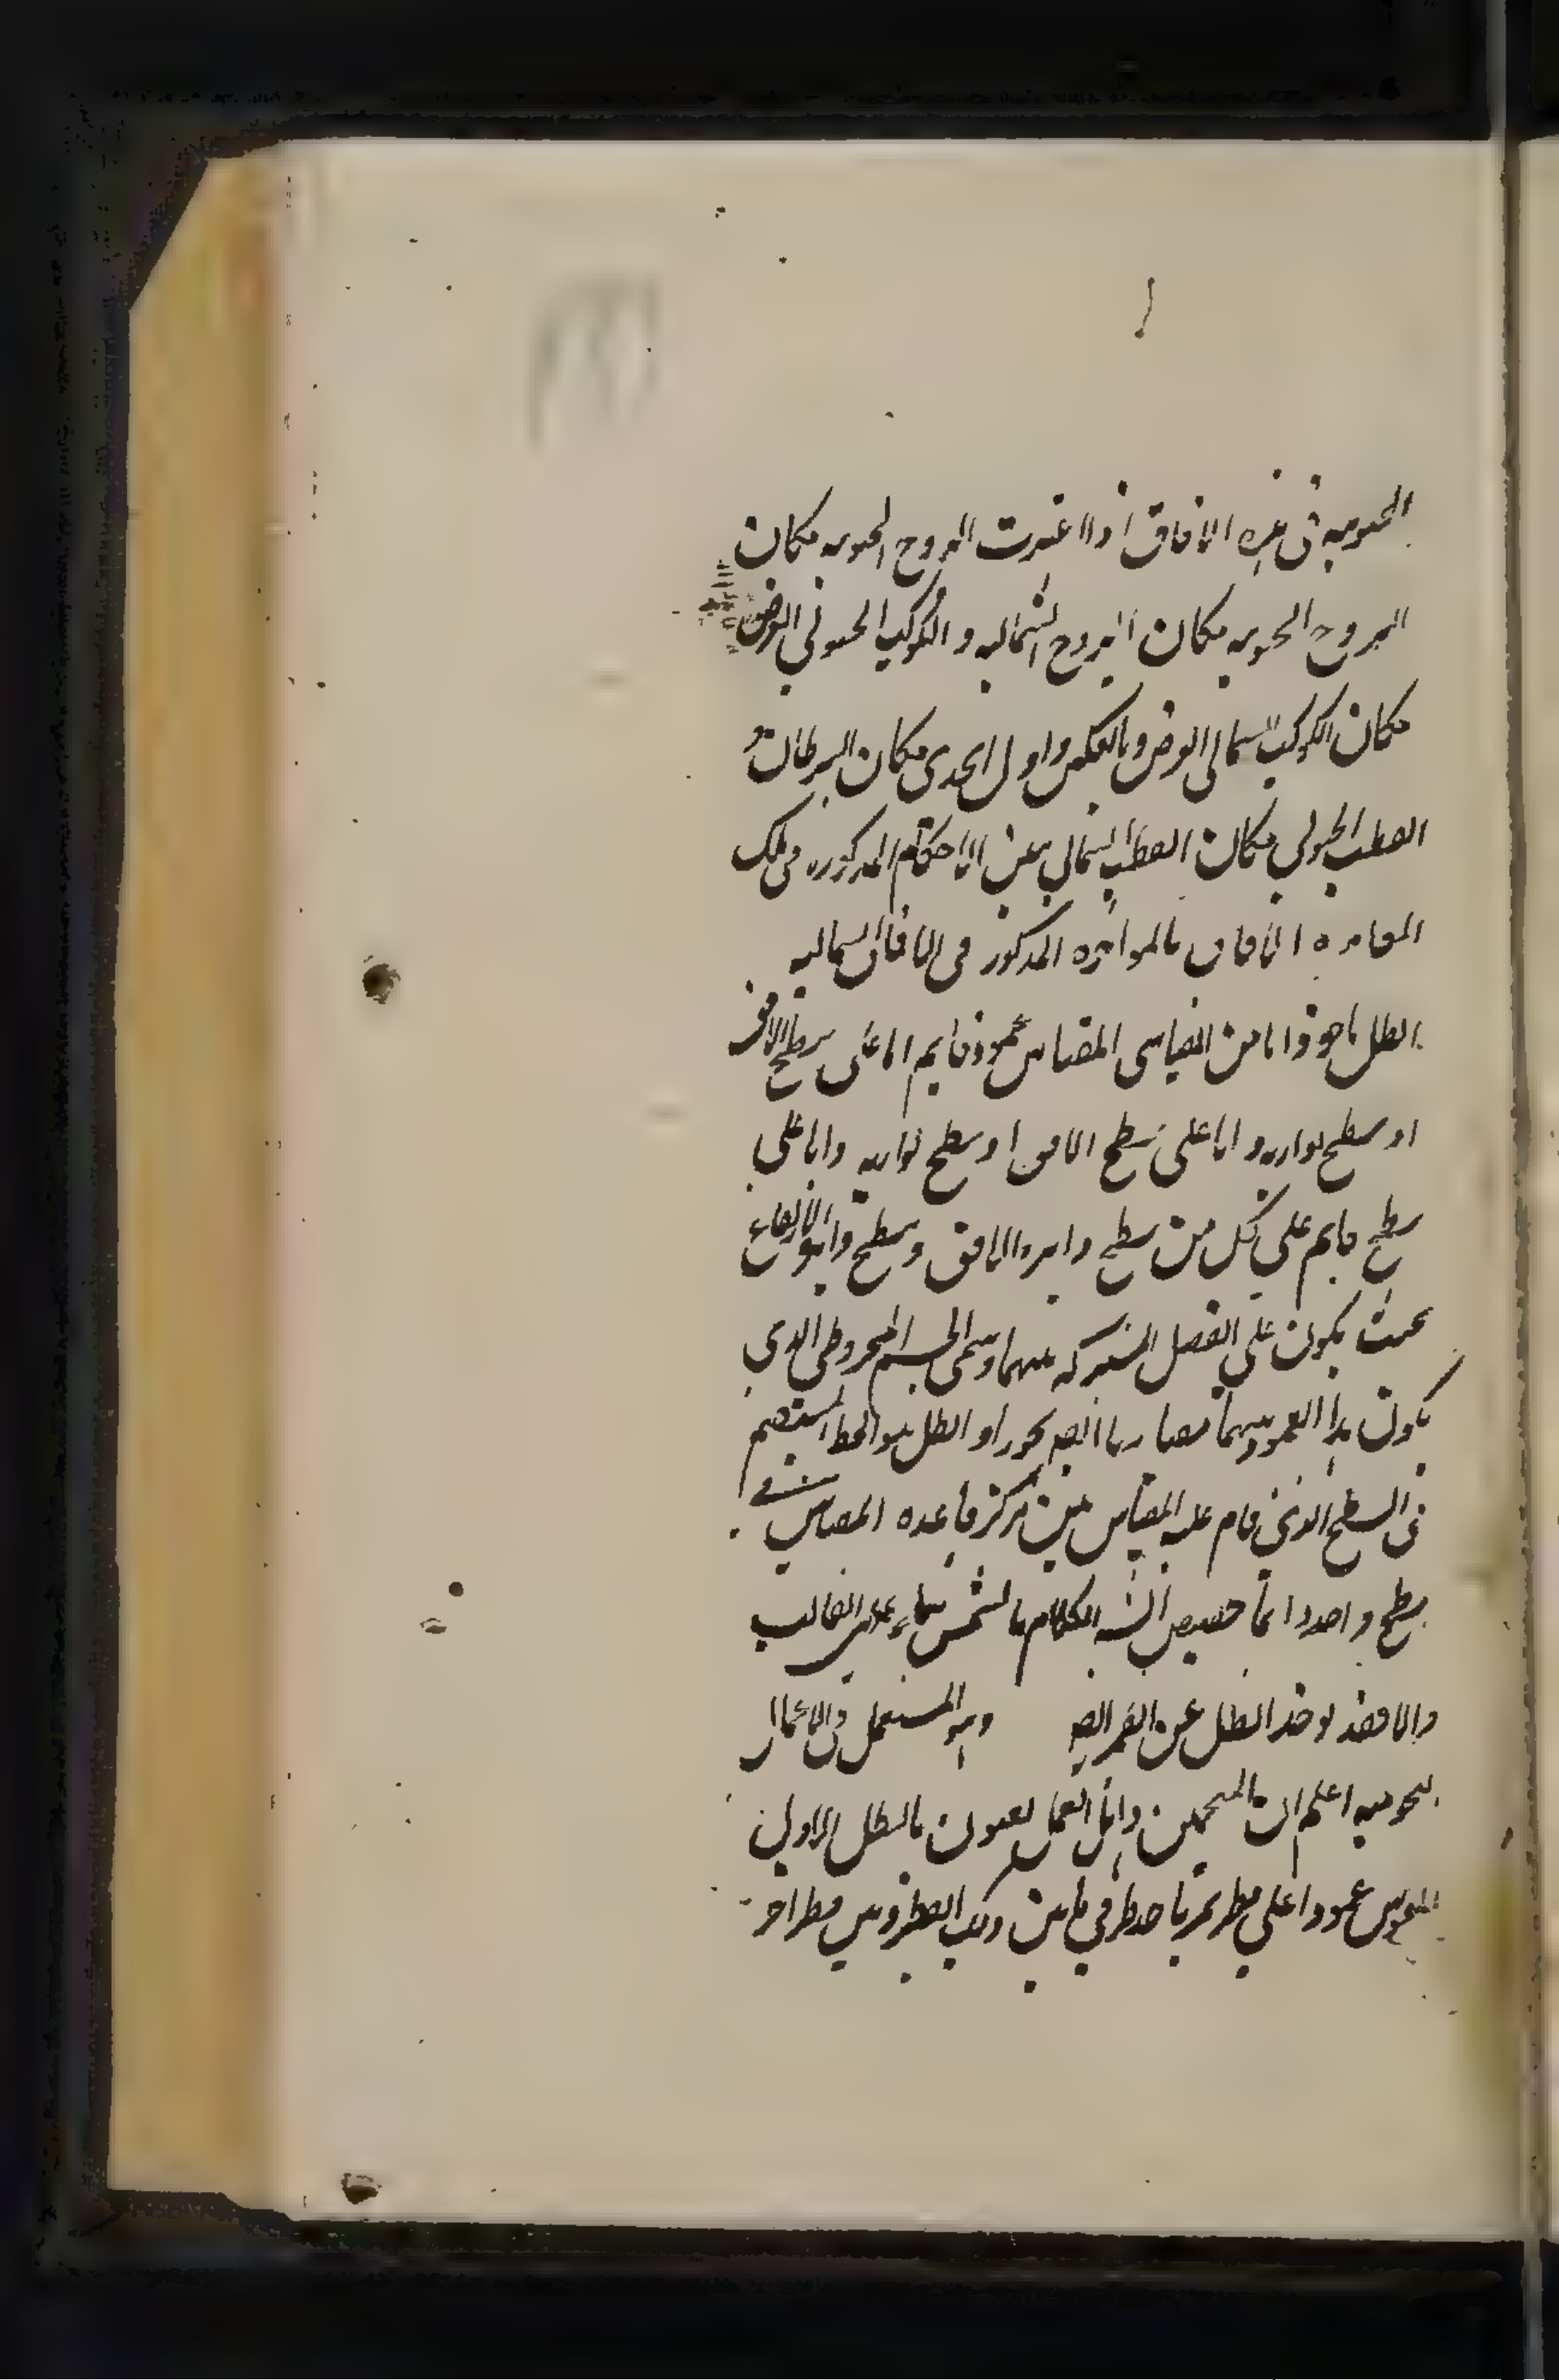 الجنوبيه فى هذه الافاق اذا اعتبرت البروج الجنوبيه مكان
البروج الجنوبيه مكان البروج الشماليه والكوكب الجنوبى العرض
مكان الكوكب الشمالى العرض وبالعكس واول الجدى مكان السرطان و
القطب الجنوبي مكان القطب الشمالي بعض الاحكام المذكوره فى تلك
الافاق المذكور فى الافاق الشماليه
الظل ماخوذ اما من المقياس المقياس عمود قايم اما على سطح الافق
او سطح يوازيه و اما على سطح الافق او سطح يوازيه واما على
سطح قايم على كل من سطح دايره الافق و سطح دايره الارتفاع
بحيث يكون على الفصل المشترك بينهما وسمى الجسم المخروطى الذي
يكون هذا العمود سهما مقياسا ايضا او الظل هو الخط المستقيم
فى السطح الذي قام عليه المقياس بين مركز قاعده المقياس
سطح واحد وانما الكلام بالشمس بناء على الغالب
والا فقد يوخذ الظل عن القمر ايضا وهو المستعمل فى الاعمال
النجوميه اعلم ان المنجمين واهل العمل يعنون بالظل الاول
القوس عمودا على قطر يمر باحد طرفي ما بين ذلك القطر وبين قطر اخر